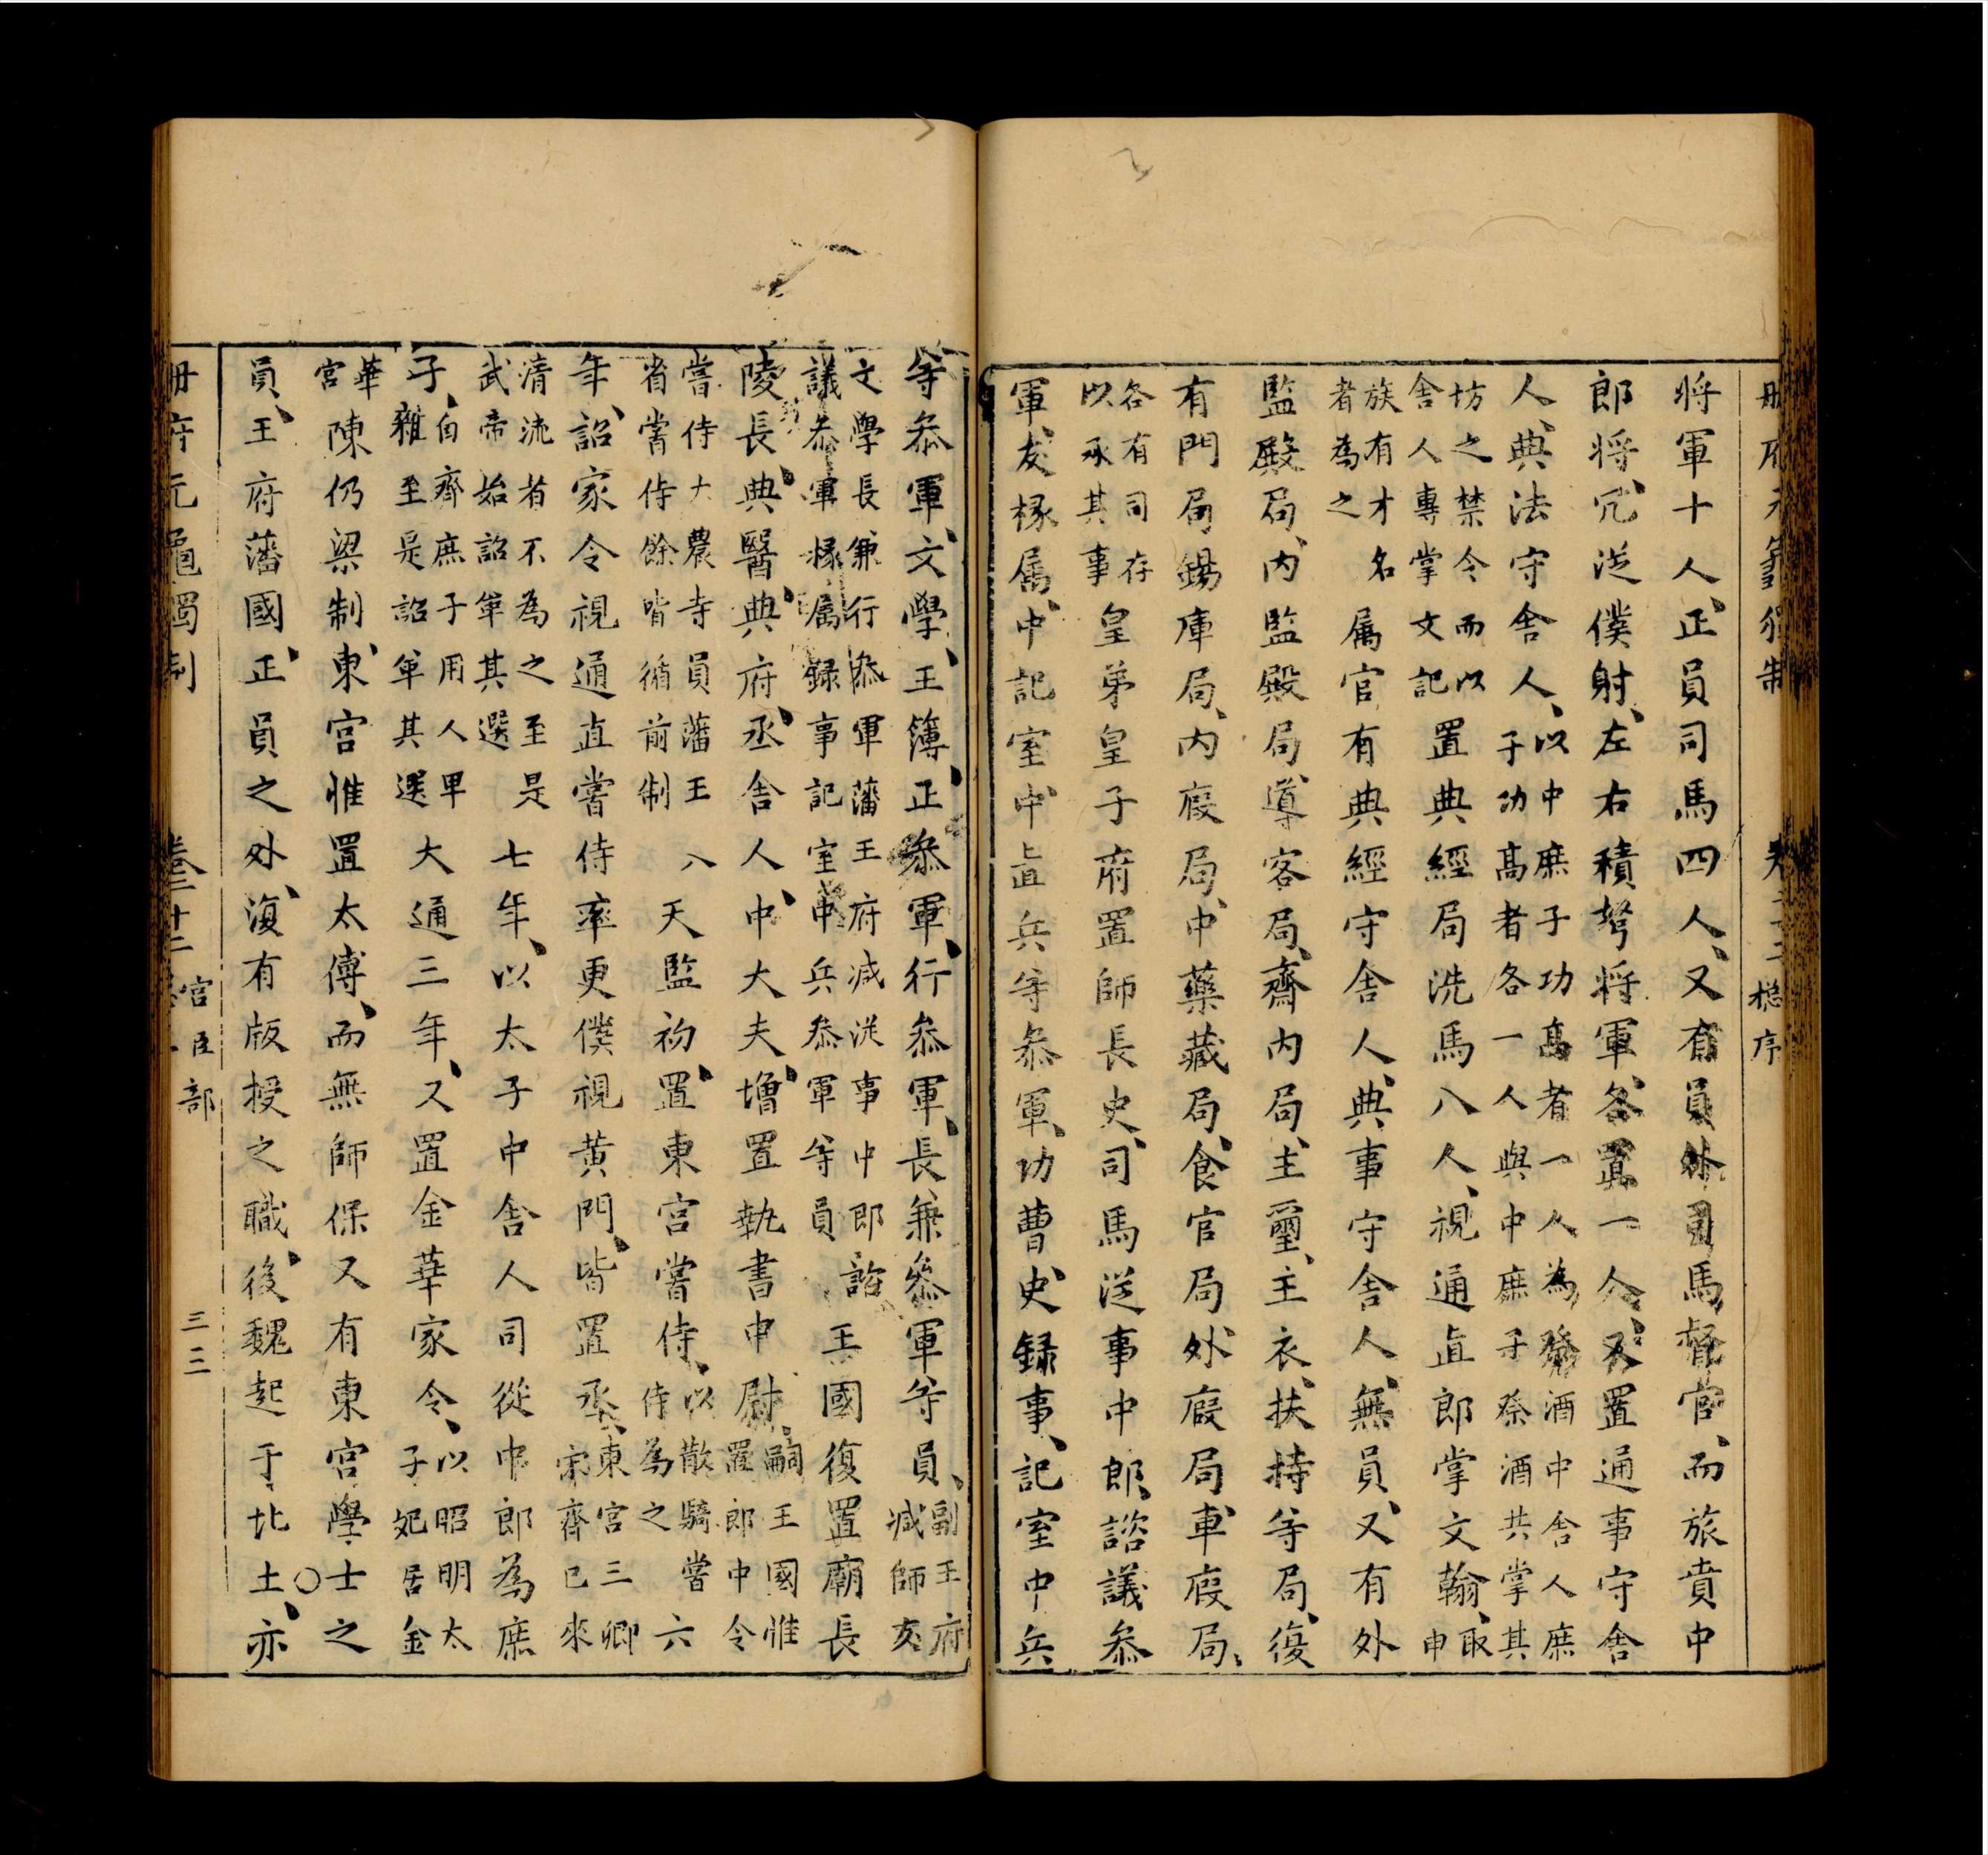 册府元龜獨制
卷二十二 總序
将軍十人、正員司馬四人、又有員外司馬督官、而旅賁中
郎将、冗從僕射、左右積弩将軍、各置一人、又置通事守舍
人、典法守舍人、以中庶子功高者一人為祭酒中舍人庶
子功高者各一人與中庶子祭酒共掌其
坊之禁令而以
舍人專掌文記置典經局洗馬八人、視通直郎掌文翰、取
甲
族有才名
者為之屬官有典經守舍人、典事守舍人、無員、又有外
監殿局、内監殿局、導客局、齋内局、主璽、主衣、扶持等局、復
有門局錫庫局、内廄局、中藥藏局、食官局、外廄局、車廄局、
各有司存
以承其事皇弟皇子府置師長史、司馬從事中郎、諮議參
軍、友掾属、中記室、中直兵等參軍、功曹史、録事、記室中兵
等參軍、文學、王簿、正參軍、行參軍、長兼參軍等員、副王府
減師友
文學長兼行參軍藩王府減從事中郎諮
議參軍掾属録事記室中兵參軍等員王國復置廟長
陵長、典醫、典府、丞、舍人、中大夫、增置執書中尉、嗣王國惟
置郎中令
嘗侍大農寺員藩王
省嘗侍餘皆循前制八天監初、置東宫嘗侍、以散騎嘗
侍為之六
年、詔家令視通直嘗侍率更僕視黄門、皆置丞、東宫三卿
宋齊已來
清流者不為之至是
武帝始詔革其選七年、以太子中舍人司從中郎為庶
子、自齊庶子用人卑
雜至是詔革其選大通三年、又置金華家令、以昭明太
子妃居金
華
宫陳仍梁制、東宫惟置太傅、而無師保又有東宫學士之
員、王府藩國、正員之外、復有版授之職、後魏起于北土、亦
册府元龜獨制
卷二十二
宫臣部
三三